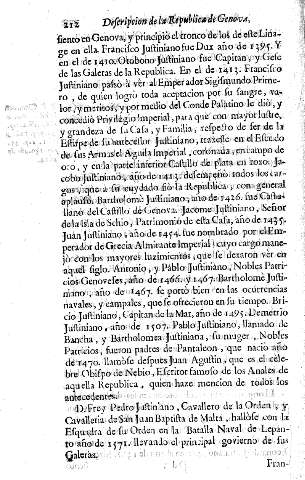 212 Descripcion de la Republica de Genova,
siento en Genova, y principiò el tronco de los de este Lina-
ge en ella. Francisco Justiniano fue Dux año de 1395. Y
en el de 1410. Otobono Justiniano fue Capitan, y Gefe
de las Galeras de la Republica. En el de 1413. Francisco
Justiniano passò à vèr al Emperador Sigismundo Prime-
ro, de quien logrò toda aceptacion por su sangre, va-
lor, y meritos, y por medio del Conde Palatino le diò, y
concediò Privilegio Imperial, para que con mayor lustre,
y grandeza de su Casa, y Familia, respecto de ser de la
Estirpe de su antecessor Justiniano, traxesse en el Escudo
de sus Armas el Aguila Imperial, coronada, en campo de
oro, y en la parte inferior Castillo de plata en roxo. Ja-
cobo Justiniano, año de 1413. desempeñò todos los car-
gos, que à su cuydado fiò la Republica, con general
aplauso. Bartholomè Justiniano, año de 1426. fue Caste-
llano del Castillo de Genova. Jacome Justiniano, Señor
de la Isla de Schio, Patrimonio de esta Casa, año de 1435.
Juan Justiniano, año de 1454. fue nombrado por el Em-
perador de Grecia Almirante Imperial; cuyo cargo mane-
jò con los mayores luzimientos, que se dexaron vèr en
aquel siglo. Antonio, y Pablo Justiniano, Nobles Patri-
cios Genoveses, año de 1466. y 1467. Bartholomè Justi-
niano, año de 1467. se portò bien en las ocurrencias
navales, y campales, que se ofrecieron en su tiempo. Bri-
cio Justiniano, Capitan de la Mar, año de 1495. Demetrio
Justiniano, año de 1507. Pablo Justiniano, llamado de
Bancha, y Bartholomea Justiniana, su muger, Nobles
Patricios, fueron padres de Pantaleon, que naciò año
de 1470. llamòse despues Juan Agustin, que es el cèle-
bre Obispo de Nebio, Escritor famoso de los Anales de
aquella Republica, quien haze mencion de todos los
antecedentes.
D. Frey Pedro Justiniano, Cavallero de la Orden, y
Cavalleria de San Juan Baptista de Malta, hallòse con la
Esquadra de su Orden en la Batalla Naval de Lepan-
to año de 1571. llevando el principal govierno de sus
Galeras.
Fran-